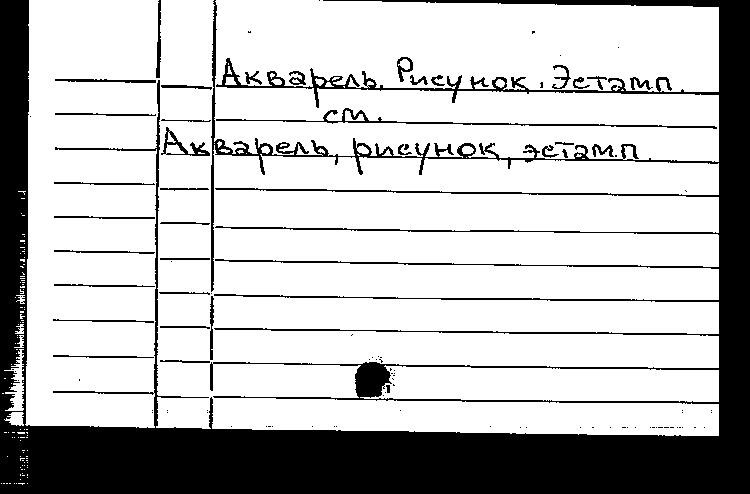 Акварель. Рисунок. Эстамп.
см.
Акварель, рисунок, эстамп.